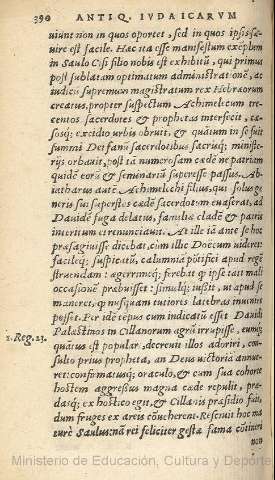 390 ANTIQ. IVDAICARVM
uiunt non in quos oportet, sed in quos ipsis sæ-
uire est facile. Hac ita esse manifestum exẽplum
in Saulo Cisi filio nobis est exhibitũ, qui primus
post sublatam optimatum administrationẽ, ac
iudicũ supremum magistratum rex Hebræorum
creatus, propter suspectum Achimelecum tre-
centos sacerdotes & prophetas interfecit, cæ-
sosq; excidio urbis obruit, & quãtum in se fuit
summi Dei fanũ sacerdotibus sacrisq; ministe-
rijs orbauit, post tã numerosam cæde ne patriam
quidẽ eorũ & seminariũ superesse passus. Ab-
iatharus autẽ Achimelchi filius, qui solus ge-
neris sui superstes cæde sacerdotum euaserat, ad
Dauidẽ fuga delatus, familiæ cladẽ & patris
interitum ei renunciauit. At ille iã ante se hoc
præsagiuisse dicebat, cùm ille Doecum uidisset:
facileq; suspicatũ, calumniã pũtifici apud regẽ
struendam: agerrimeq; ferebat q̃ ipse tati mali
occasionẽ præbuisset: simulq; iussit, ut apud se
maneret, q̃ nusquam tutiores latebras inuenire
posset. Per idẽ tẽpus cum indicatũ esset Dauidi
1. Reg. 23. Palæstinos in Cillanorum agrũ irrupisse, eumq;
quãtus est popular, decreuit illos adoriri, con-
sulto prius propheta, an Deus uictoria annue-
ret: confirmatusq; oraculo, & cum sua cohorte
hostem aggressus magna cæde repulit, præ-
daq; ex hostico egit, & Cillanis præsidio fuit,
dum fruges ex areis cõueherent. Resciuit hoc ma
turè Saulus: nã rei feliciter gestæ fama cõtineri
non
Ministerio de Educación, Cultura y Deporte